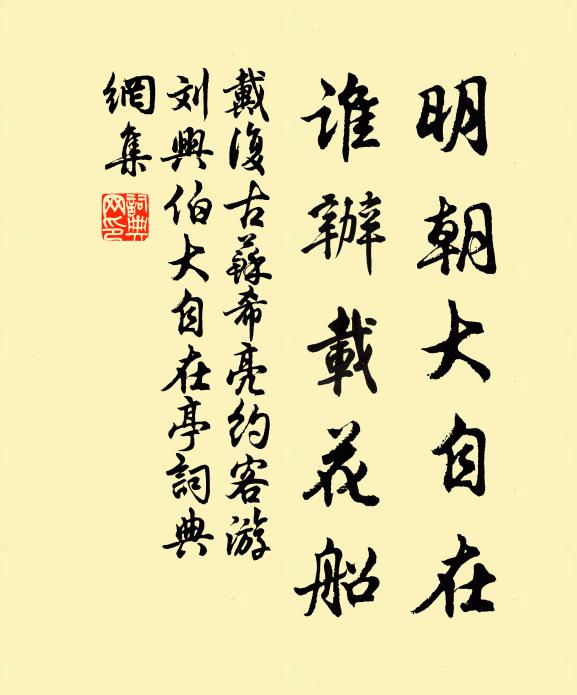 明朝大自在
誰辦載花船
戴復古蘇希亮約客游
刘興伯大自在亭詞典
網集
詞典網印